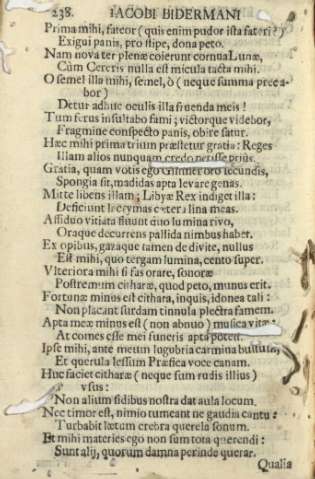 238. IACOBI BIDERMANI
Prima mihi, fateor (quis enim pudor ista fateri?)
Exigui panis, pro stipe, dona peto.
Nam nova ter plenæ coierunt cornua Lunæ,
Cùm Cereris nulla est micula tacta mihi.
O semel illa mihi, semel, ò (neque summa precabor)
Detur adhuc oculis illa fruenda meis!
Tum ferus insultabo fami; victorque videbor,
Fragmine conspecto panis, obire satur.
Hæc mihi prima trium præstetur gratia: Reges
Illam alios nunquam credo negasse prius.
Gratia, quam votis ego oro secundis,
Spongia sit, madidas apta levare genas.
Mitte libens illam; Libyæ Rex indiget illa:
Deficiunt lacrymas cætera lina meas.
Assiduo vitiata fluunt duo lumina rivo,
Oraque decurrens pallida nimbus habet.
Ex opibus, gazaque tamen de divite, nullus
Est mihi, quo tergam lumina, cento super.
Vlteriora mihi si fas orare, sonoræ
Postremum citharæ, quod peto, munus erit.
Fortunæ minus est cithara, inquis, idonea tali:
Non placant surdam tinnula plectra famem.
Apta meæ minus est (non abnuo) musica vitæ:
At comes esse mei funeris apta potest.
Ipse mihi, ante meum lugubria carmina bustum,
Et querula lessum Præfica voce canam.
Huc faciet citharæ (neque sum rudis illius)
vsus:
Non alium fidibus nostra dat aula locum.
Nec timor est, nimio tumeant ne gaudia cantu:
Turbabit lætum crebra querela sonum.
Et mihi materies ego non sum tota querendi:
Sunt alij, quorum damna perinde querar.
Qualia